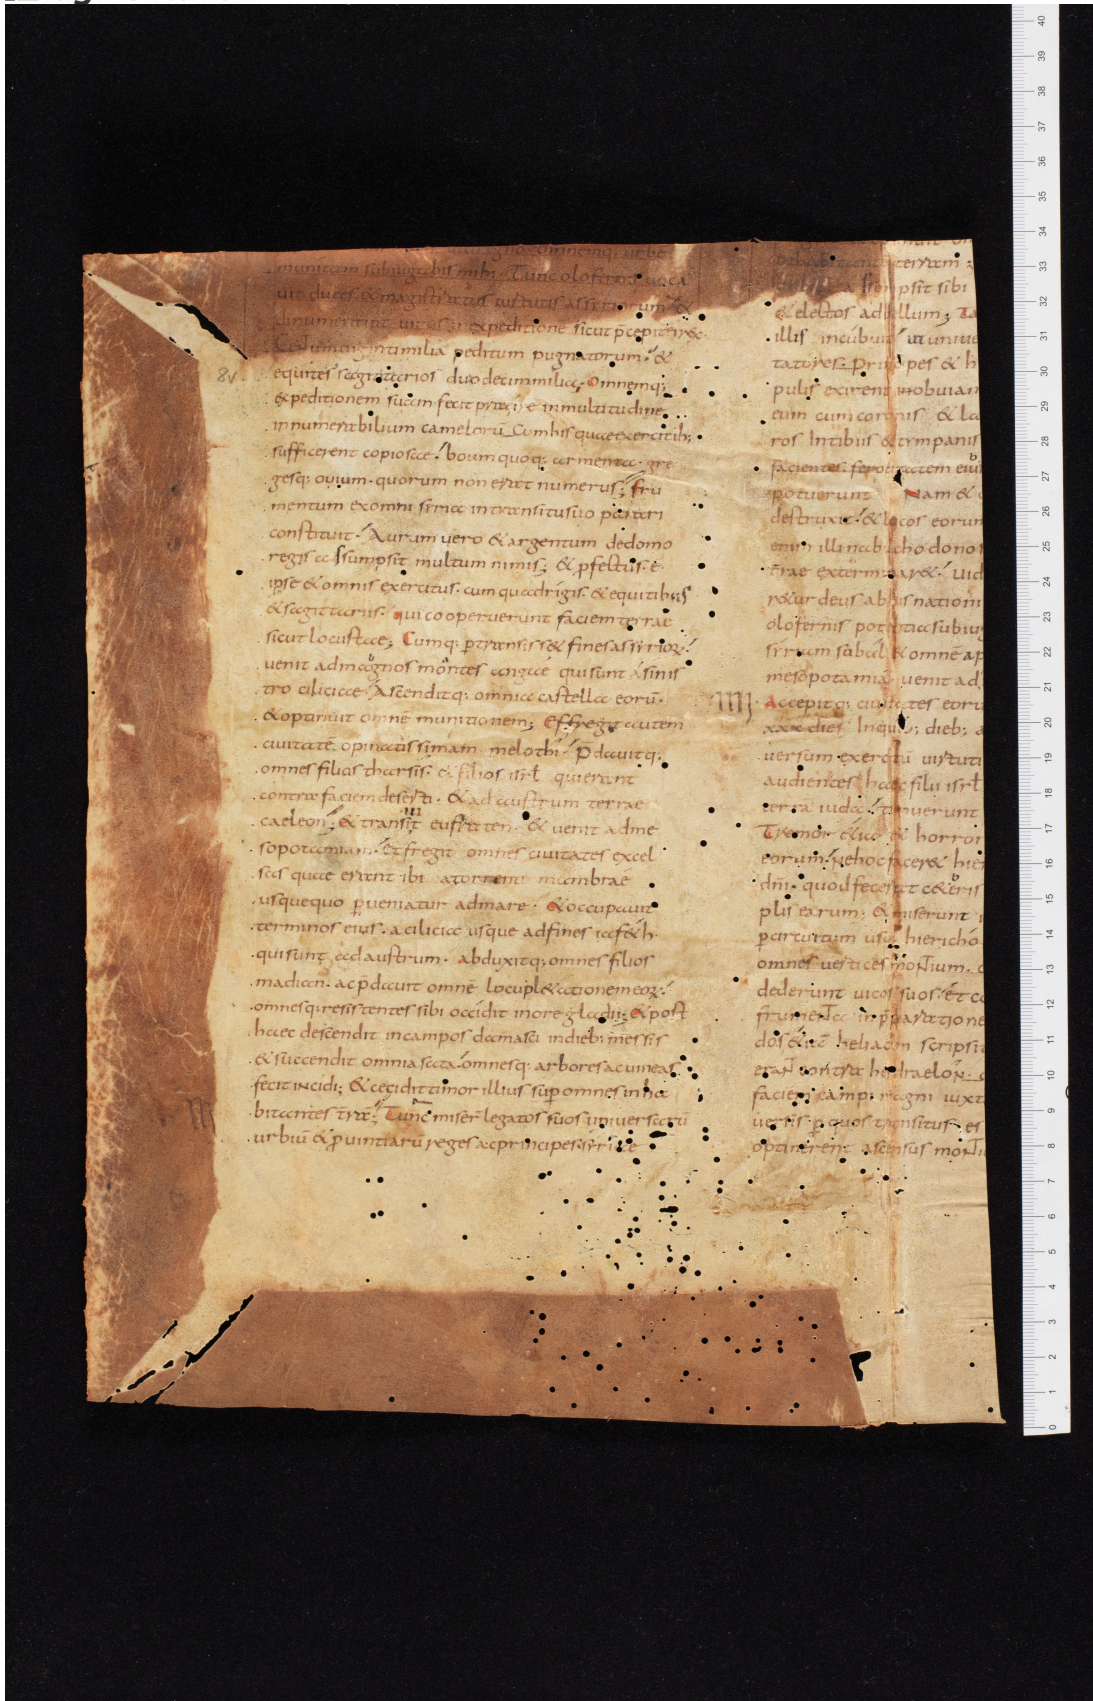 omnemq; urbe
munitam subiugabis mihi · Tunc olofernes uoca
uit duces & magistratus uirtutis assiriorum · &
dinumerauit uiros in expeditione sicut p̄cepit ei rex ·
Centum uiginti milia peditum pugnatorum · &
equites sagittarios duodecim milia · Omnemq;
expeditionem suam fecit praeire in multitudine
innumerabilium camelorū Cum his quae exercitib;
sufficerent copiosae · boum quoq; armenta · gre
gesq; ouium · quorum non erat numerus; fru
mentum ex omni siria in transitu suo parari
constituit · Aurum uero & argentum de domo
regis assumpsit multum nimis; & p̄fectus · e ·
ipse & omnis exercitus · cum quadrigis · & equitibus
& sagittariis · qui cooperuerunt faciem terrae
sicut locustae; Cumq; p̄transiss& fines assirioꝝ
uenit ad magnos montes angae qui sunt a sinis
tro ciliciae · Ascenditq; omnia castella eorū ·
& optinuit omnē munitionem; Effregit autem
ciuitatē opinatissimam melothi · P̄dauitq;
omnes filios tharsis · & filios isrł qui erant
contra faciem deserti · & ad austrum terrae
caeleon; & transiit eufraten · & uenit ad me
sopotamiam · Et fregit omnes ciuitates excel
sas quae erant ibi a torrente mambrae
usquequo p̄ueniatur ad mare · & occupauit
terminos eius · a cilicia usque ad fines iafeth ·
qui sunt ad austrum · abduxitq; omnes filios
madian · ac p̄dauit omnē locupl&ationem eoꝝ ·
omnesq; resistentes sibi occidit in ore gladii; & post
haec descendit in campos damasci in dieb; messis
& succendit omnia sata · omnesq; arbores ac uineas
fecit incidi; & cecidit timor illius sup omnes inha
bitantes trā; Tunc miser̄ legatos suos uniuersarū
urbiū & p̄uintiarū reges ac principes · siriae
terram ;
scripsit sibi
& electos ad bellum; Ta
illis incubuit · ut uniue
tatores · Principes & h
pulis exirent in obuiam
eum cum coronis & la
ros In tibiis & tympanis
facientes · ferocitatem eius
potuerunt Nam & c
destruxit · & locos eorum
enim illi nabuchodonos
trae exterminare& · uid
r&ur deus ab his nationi
olofernis potentia subiug
siriam sabal & omnē ap
mesopotamiā · uenit ad
IIII · Accepitq; ciuitates eoru
xxx dies Inquib; dieb; a
uersum exercitū uirtuti
audientes haec filii isrł
terra iuda · timuerunt
Tremor & horror
eorum · ne hoc facer& hie
dn̄i · quod fecerat ceteris
plis earum · & miserunt
p̄ circuitum usq; hiericho
omnes uertices montium ·
dederunt uicos suos · Et co
frumenta in p̄paratione
dos heliacim scripsit
contra hesdraelon ·
faciem campi magni iuxta
uersis · p̄ quos transitus es
optinerent ascensus montiu
8v
III